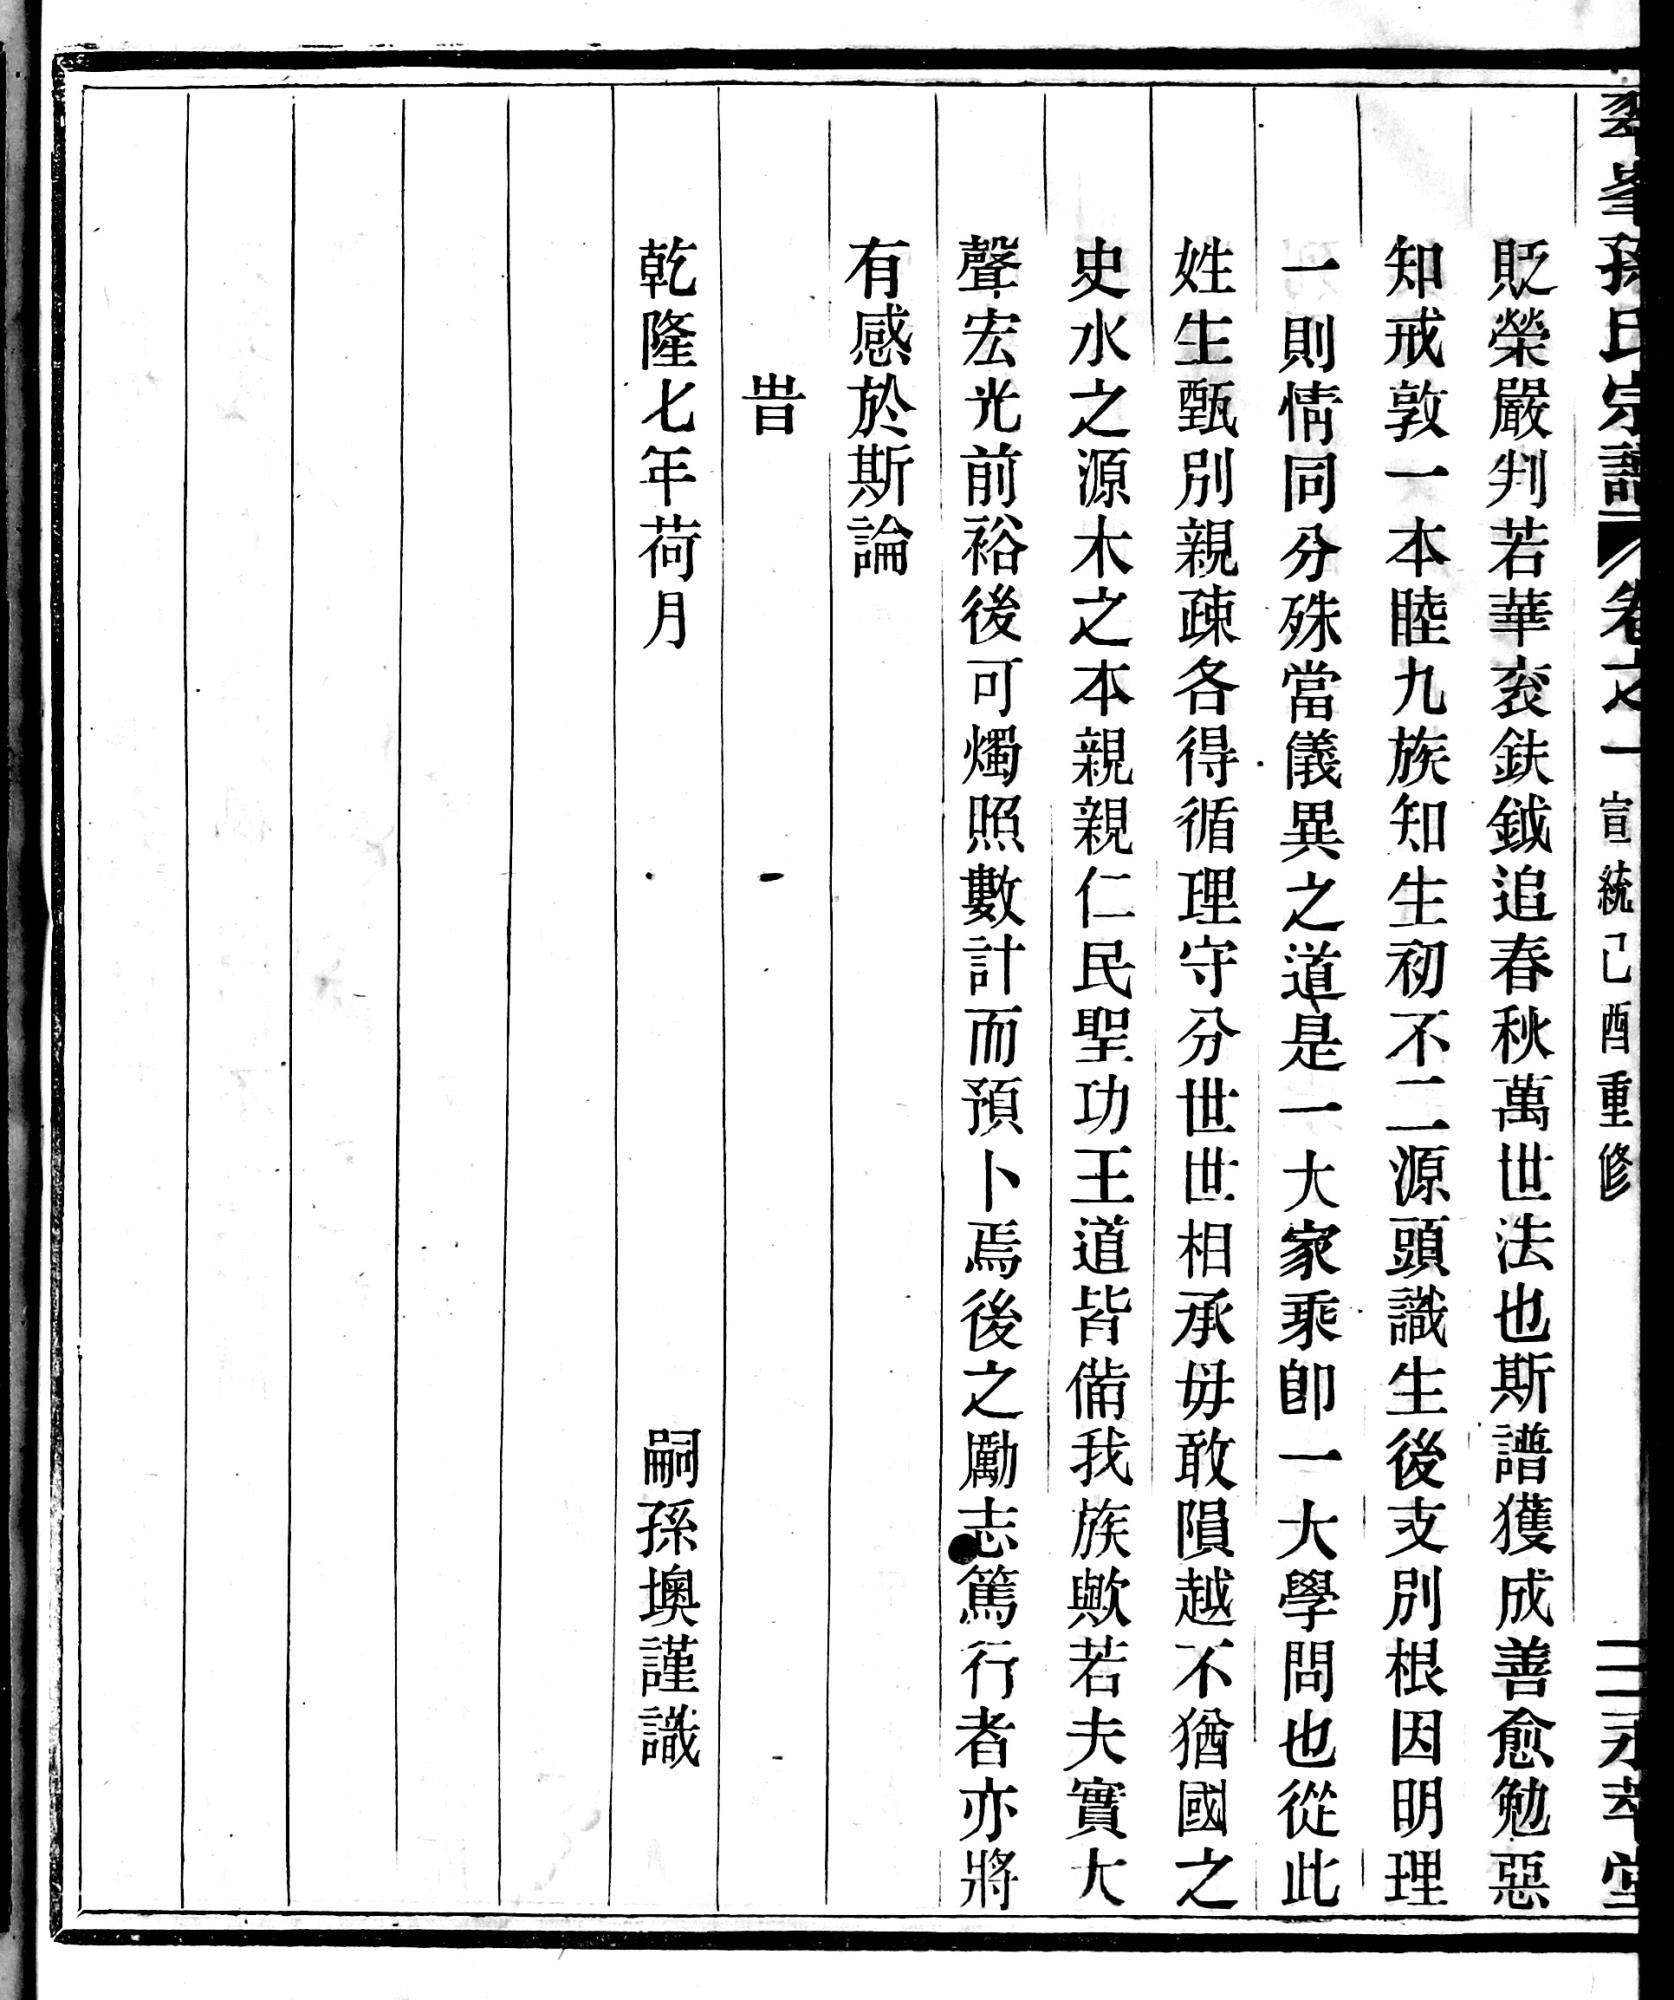 孫氏宗譜 卷之一 宣統己酉重修 二
貶榮嚴判若華衮鈇鉞追春秋萬世法也斯譜獲成善愈勉惡
知戒敦一本睦九族知生初不二源頭識生後支別根因明理
一則情同分殊當儀異之道是一大家乘卽一大學問也從此
姓生甄別親疎各得循理守分世世相承毋敢隕越不猶國之
史水之源木之本親親仁民聖功王道皆備我族歟若夫實大
聲宏光前裕後可燭照數計而預卜焉後之勵志篤行者亦將
有感於斯論
旹
乾隆七年荷月 嗣孫墺謹識